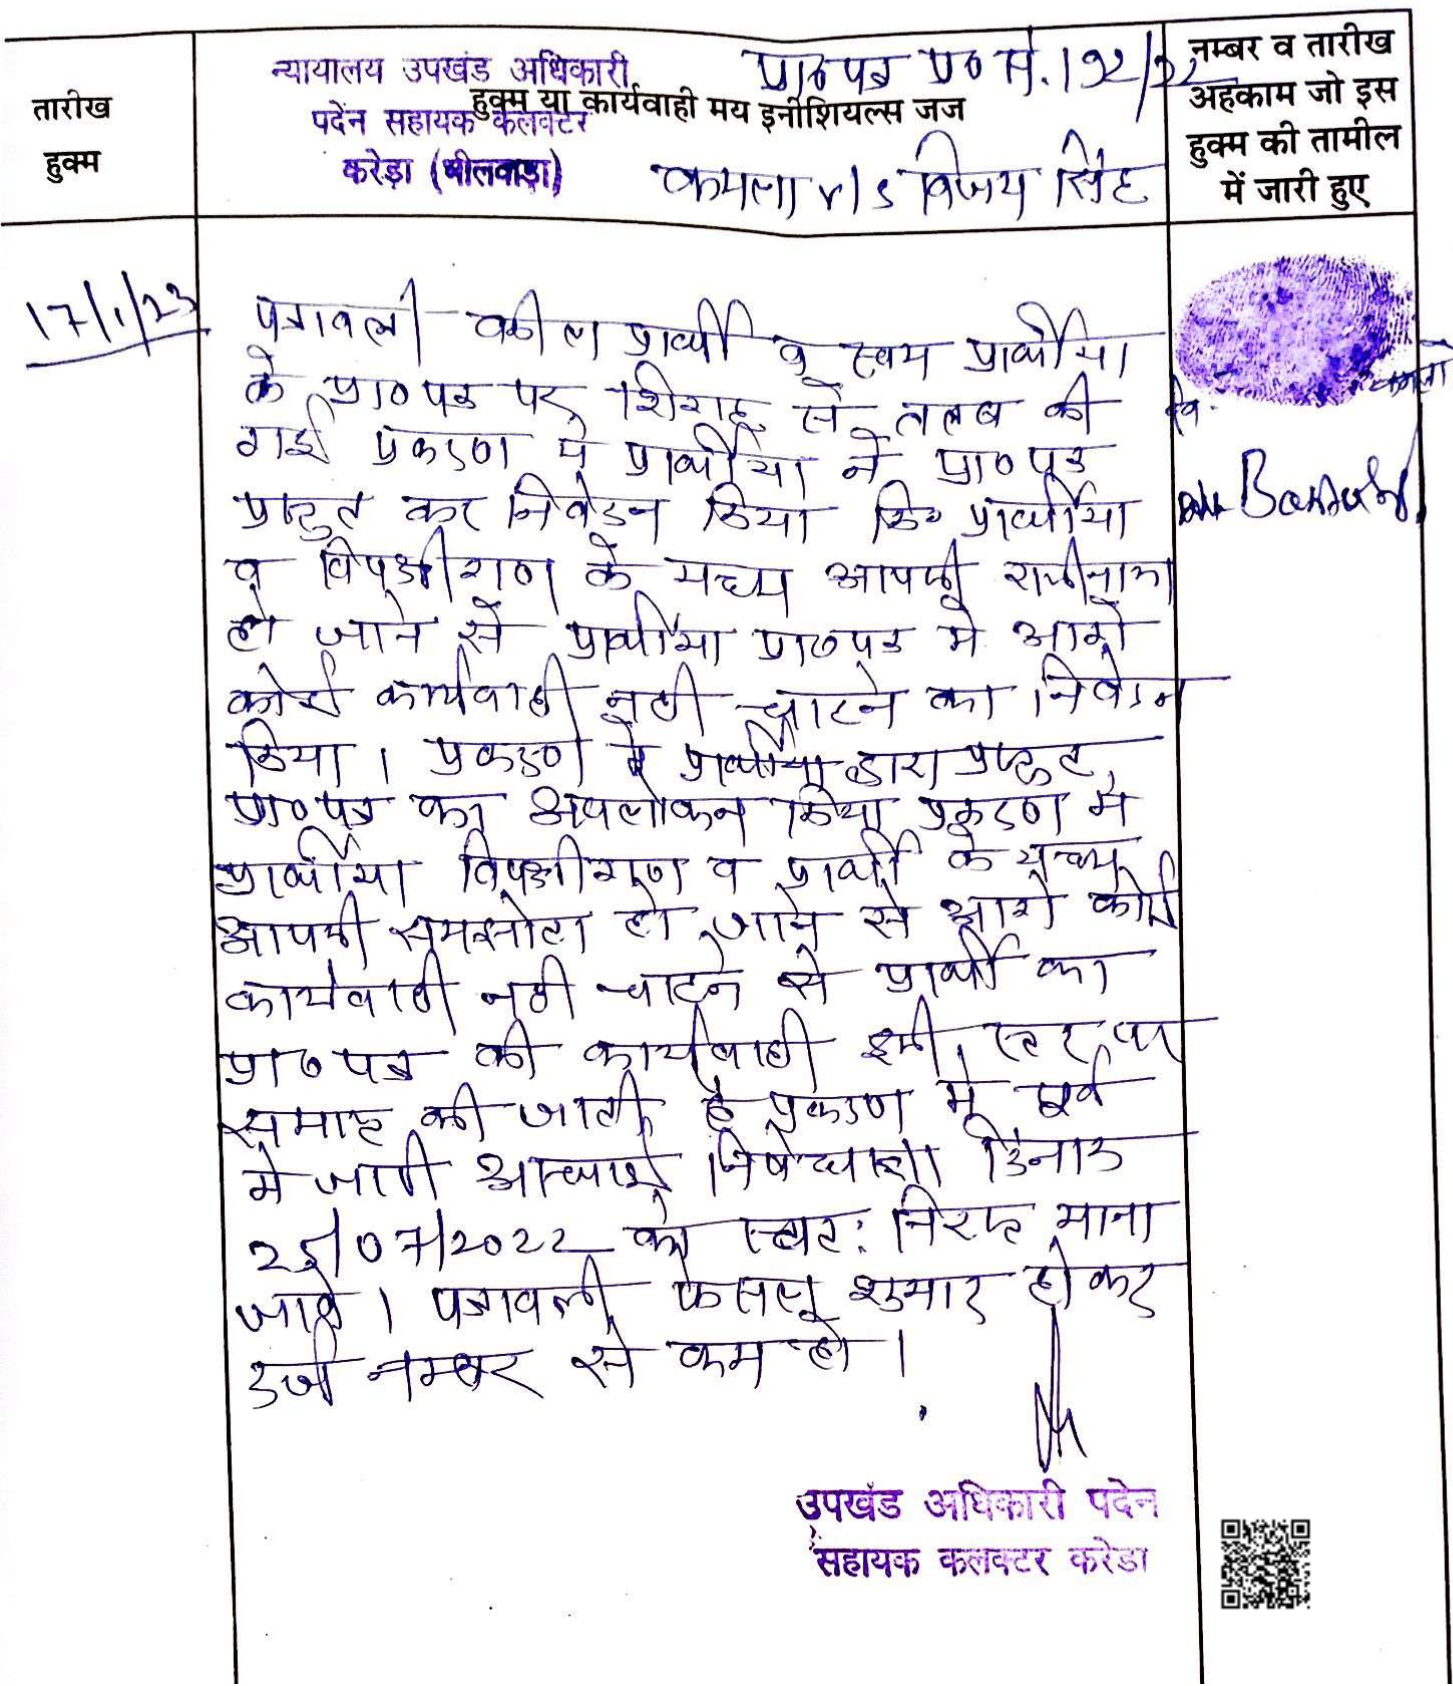 तारीख
हुक्म
न्यायालय उपखंड अधिकारी
पदेन सहायक कलक्टर
करेड़ा (भीलवाड़ा)
हुक्म या कार्यवाही मय इनीशियल्स जज
प्रा०पत्र प्र० सं.
कमला v/s विजय सिंह
नम्बर व तारीख
अहकाम जो इस
हुक्म की तामील
में जारी हुए
17/1/23
पत्रावली वकील प्रार्थी व स्वयं प्रार्थीया
के प्रा०पत्र पर से तलब की
गई प्रकरण मे प्रार्थीया ने प्रा०पत्र
प्रस्तुत कर निवेदन किया कि प्रार्थीया
व विपक्षीगण के मध्य आपसी राजीनामा
हो जाने से प्रार्थीया प्रा०पत्र मे आगे
कोई कार्यवाही नही चाहने का निवेदन
किया । प्रकरण मे प्रार्थीया द्वारा प्रस्तुत
प्रा०पत्र का अवलोकन किया प्रकरण मे
प्रार्थीया विपक्षीगण व प्रार्थी के मध्य
आपसी समझोता हो जाने से आगे कोई
कार्यवाही नही चाहने से प्रार्थी का
प्रा०पत्र की कार्यवाही इसी स्तर पर
समाप्त की जाती है प्रकरण मे पूर्व
मे जारी अस्थाई निषेधाज्ञा दिनांक
25/07/2022 को स्वतः निरस्त माना
जावे । पत्रावली फैसल शुमार होकर
दर्ज नम्बर से कम हो ।
कमला
उपखंड अधिकारी पदेन
सहायक कलक्टर करेडा